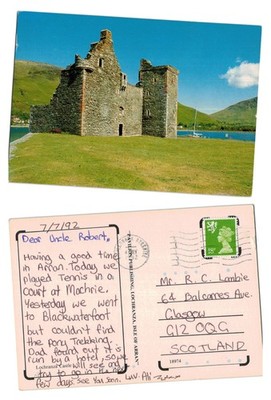 7/7/92
Dear Uncle Robert,
Having a good time
in Arran. Today we
played Tennis in a
Court at Machrie.
Yesterday we went
to Blackwaterfoot but
couldn't find
the Pony Trekking.
Dad found out it is
run by a hotel, so we
will see and
try to go in the next
few days. See You Soon. Luv Ali
Lochranza Castle
LOCHRANZA, ISLE OF ARRAN
Mr. R. C. Lambie
64 Balcarres Ave
Glasgow
G12 0QG
SCOTLAND